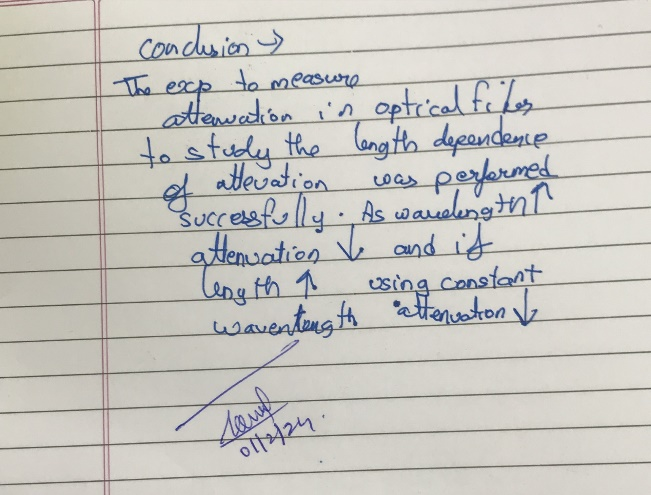 Conclusion →
The exp to measure
attenuation in optrical fibes
to study the length dependence
of attevation was performed
successfully. As wavelength ↑
attenuation ↓ and if
length ↑ using constant
wavenlength attenuation ↓
01/2/24.